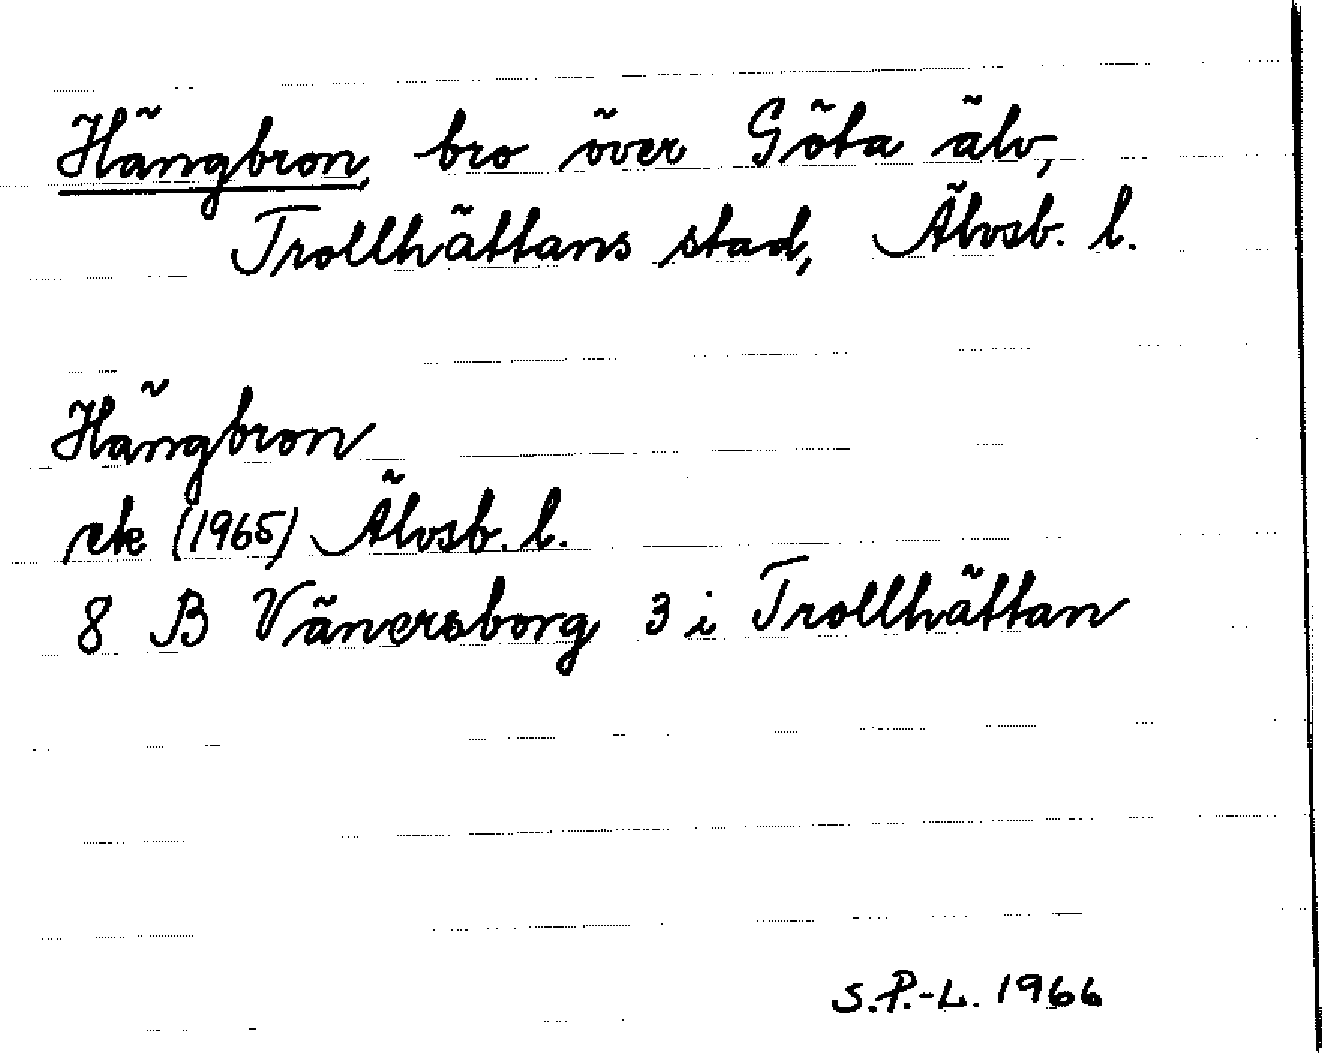 Hängbron, bro över Göta älv,
Trollhättans stad, Älvsb. l.
Hängbron
rek (1965) Älvsb. l.
8 B Vänersborg 3 i Trollhättan
S.P.-L. 1966